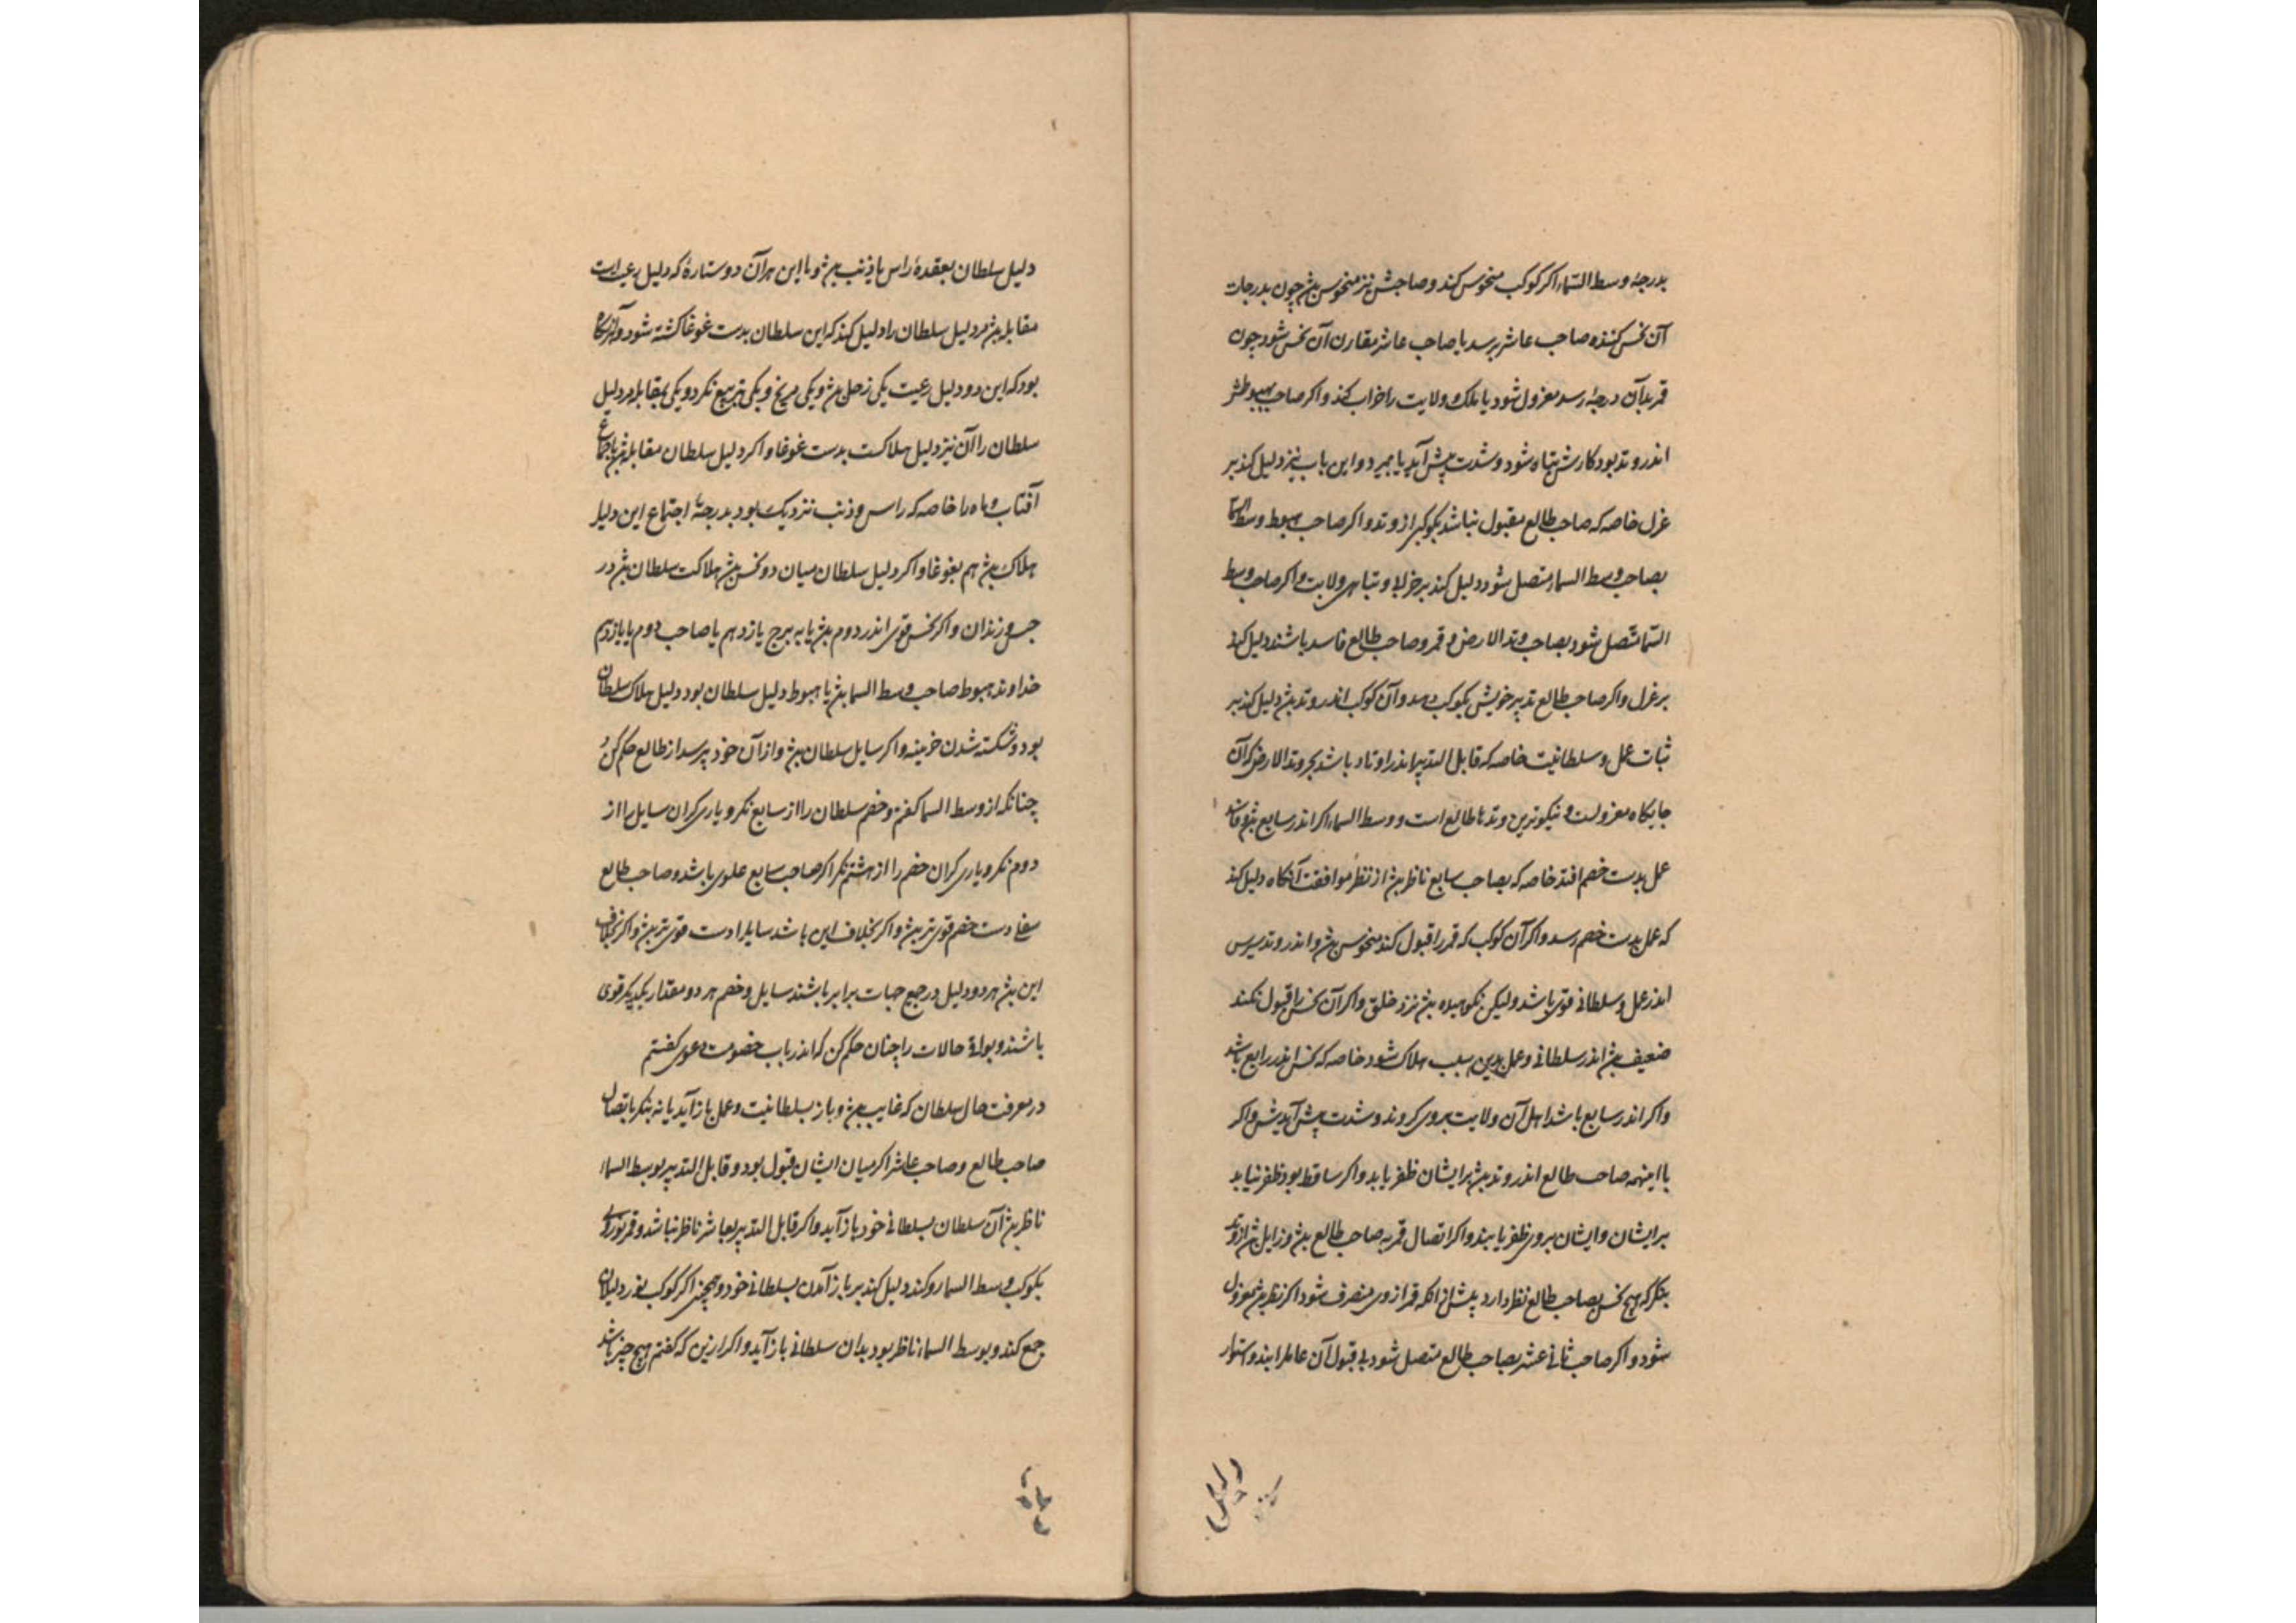 بدرجهٔ وسط السّماء اکر کوکب منحوس کند و صاحبش نیز منحوس بیژ چون بدرجات
آن نحس کننده صاحب عاشر برسد یا صاحب عاشر مقارن آن نحس شود چون
قمر بدآن درجهٔ رسد معزول شود یا ملک و ولایت را خراب کند و اکر صاحب هبوطش
اندر وتد بود کارش تباه شود و شدت پیش آید یا بمیرد و این باب نیز دلیل کند بر
عزل خاصه که صاحب طالع مقبول نباشد بکوکبی از وتد و اکر صاحب هبوط وسط السما
بصاحب وسط السماء متصل شود دلیل کند بر خرابی و تباهی ولایت و اکر صاحب وسط
السّما متصل شود بصاحب وتد الارض و قمر و صاحب طالع فاسد باشند دلیل کند
بر عزل و اکر صاحب طالع تدبیر خویش بکوکب دهد و آن کوکب اندر وتد بیژ دلیل کند بر
ثبات عمل و سلطانیت خاصه که قابل التدبیر اندر اوتاد باشد بجز وتد الارض که آن
جایکاه معزولست و نیکوترین وتدها طالع است و وسط السماء اکر اندر سابع بیژ
عمل بدست خصم افتد خاصه که بصاحب سابع ناظر بیژ از نظر موافقت آنکاه دلیل کند
که عمل بدست خصم رسد و اکر آن کوکب که قمر را قبول کند منحوس بیژ و اندر وتد
اندر عمل و سلطانی قوی باشد ولیکن نکوهیده بیژ نزد خلق و اکر آن نحس را قبول نکند
ضعیف بیژ اندر سلطانی و عمل بدین سبب هلاک شود خاصه که نحس اندر رابع باشد
واکر اندر سابع باشد اهل آن ولایت بروی کروند و شدت پیش آیدیش و اکر
با اینهمه صاحب طالع اندر وتد بیژ بر ایشان ظفر یابد و اکر ساقط بود ظفر نیابد
بر ایشان و ایشان بروی ظفر یابند و اکر اتصال قمر به صاحب طالع بیژ و زایل بیژ از وتد
بنکر که هیچ نحس بصاحب طالع نظر دارد پیش از انکه قمر از وی منصرف شود اکر نظر بیژ معزول
شود و اکر صاحب ثانی عشر بصاحب طالع متصل شود بی قبول آن عامل را بند و استوار
دلیل سلطان بعقدهٔ راس یا ذنب بیژ و با این هر آن دو ستارهٔ که دلیل رعیت است
مقابله بیژ مر دلیل سلطان را دلیل کند که این سلطان بدست غوغا کشته شود
بود که این دو دلیل رعیت یکی زحل بیژ و یکی مریخ و یکی بتربیع نکرد و یکی بمقابله مر دلیل
سلطان را آن نیز دلیل هلاکست بدست غوغا و اکر دلیل سلطان مقابله بیژ با اجتماع
آفتاب و ماه را خاصه که راس و ذنب نزدیک بود بدرجهٔ اجتماع این دلیل
هلاک بیژ هم بغوغا و اکر دلیل سلطان میان دو نحس بیژ هلاکت سلطان بیژ در
حبس و زندان و اکر نحس قوی اندر دوم بیژ یا به برج یازدهم یا صاحب دوم یا یازدهم
خداوند هبوط صاحب وسط السما بیژ یا هبوط دلیل سلطان بود دلیل هلاک سلطان
بود و شکسته شدن خزینه و اکر سایل سلطان بیژ و از آن خود پرسد از طالع حکم کن
چنانکه از وسط السما کفتم و خصم سلطان را از سابع نکر و یاری کران سایل را از
دوم نکر و یاری کران خصم را از هشتم نکر اکر صاحب سابع علوی باشد و صاحب طالع
سفلی دست خصم قوی تر بیژ و اکر بخلاف این باشد سایل را دست قوی تر بیژ و اکر بخلاف
این بیژ هر دو دلیل در جمیع جهات برابر باشند سایل و خصم هر دو مقدار یکدیکر قوی
باشند و بواقی حالات را چنان حکم کن که اندر باب خصومت و دعوی کفتم
در معرفت حال سلطان که غایب بیژ و باز بسلطانیت و عمل باز آید یا نه بنکر باتصال
صاحب طالع و صاحب عاشر اکر میان ایشان قبول بود و قابل التدبیر بوسط السماء
ناظر بیژ آن سلطان بسلطانی خود باز آید و اکر قابل التدبیر بعاشر ناظر نباشد و قمر
بکوکب وسط السما رو کند دلیل کند بر باز آمدن بسلطانی خود و همچنین اکر کوکب نور دلیلان
جمع کند و بوسط السماء ناظر بود بدان سلطانی باز آید و اکر ازین که کفتم هیچ چیز نباشد